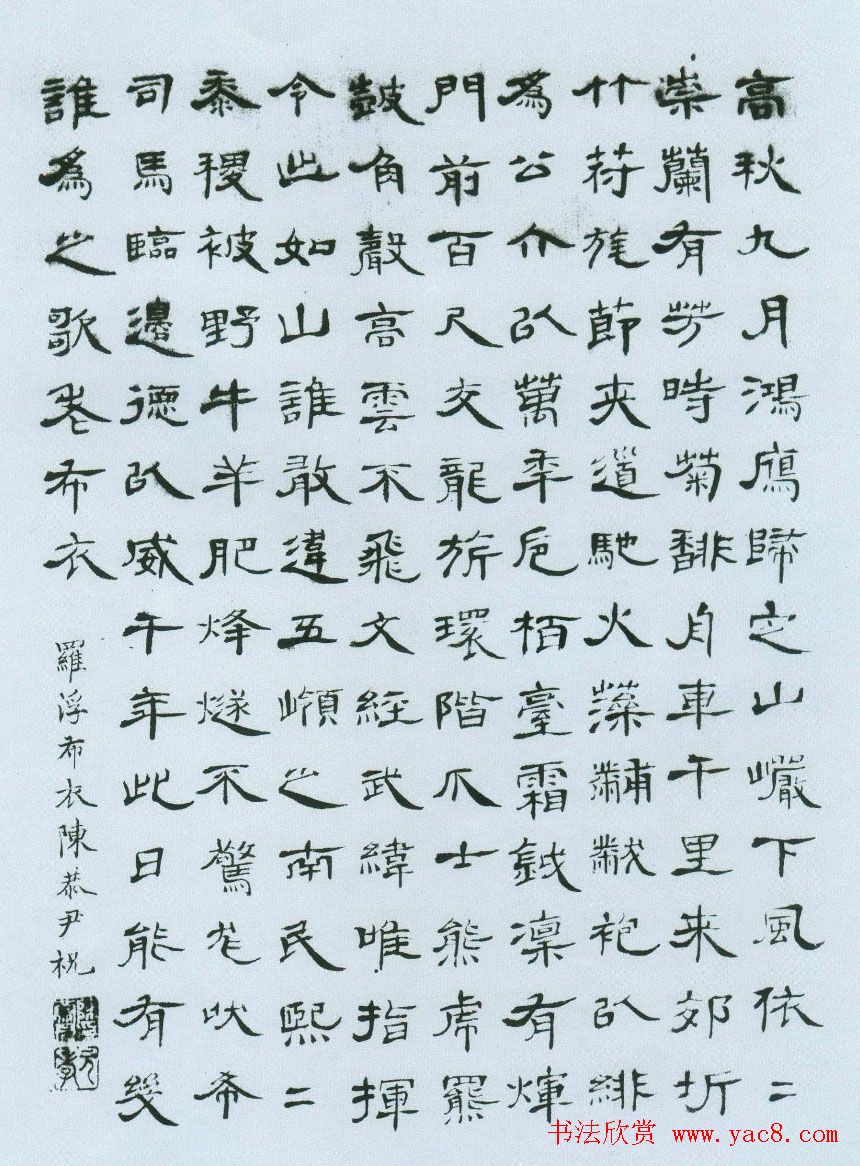 高秋九月鴻鴈歸定山巖下風依二
崇蘭有芳時菊馡舟車千里来郊圻
竹符旄節夾道馳火藻黼黻袍以緋
為公介以萬年卮栢臺霜鉞凜有煇
門前百尺交龍旂環階爪士熊虎羆
鼓角聲高雲不飛文經武緯唯指揮
令出如山誰敢違五嶺之南民熙二
黍稷被野牛羊肥烽燧不驚尨吠希
司馬臨邊德以威千年此日能有幾
誰為之歌老布衣
羅浮布衣陳恭尹祝
书法欣赏 www.yac8.com